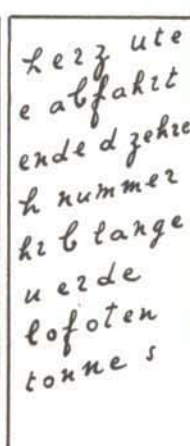 herz ute
e abfahrt
ende d zehre
h nummer
hr b lange
u erde
lofoten
tonne s